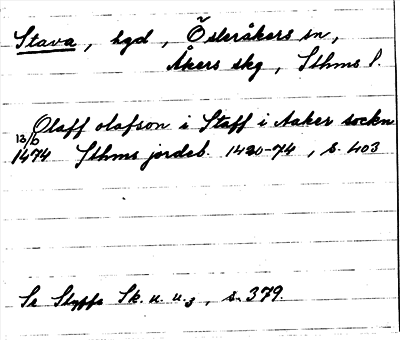 Stava, hgd, Österåkers sn,
Åkers skg, Sthms l.
Olaff olafson i Staff i Aaker sockn
13/6 1474 Sthms jordeb. 1420-74, s. 403
Se Styffe Sk. u. u.3, s. 379.